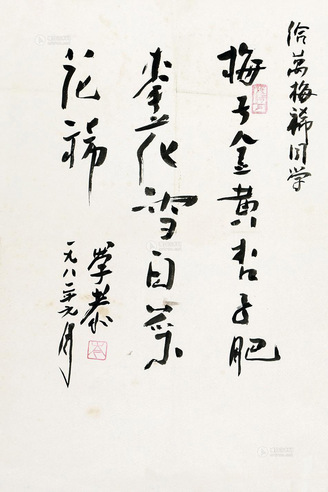 给万梅稀同学
梅子金黄杏子肥
麦花雪白菜
花稀
学泰
一九八二年元月